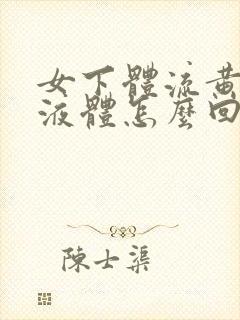 女下體流黃
液體怎麼回
陳士渠